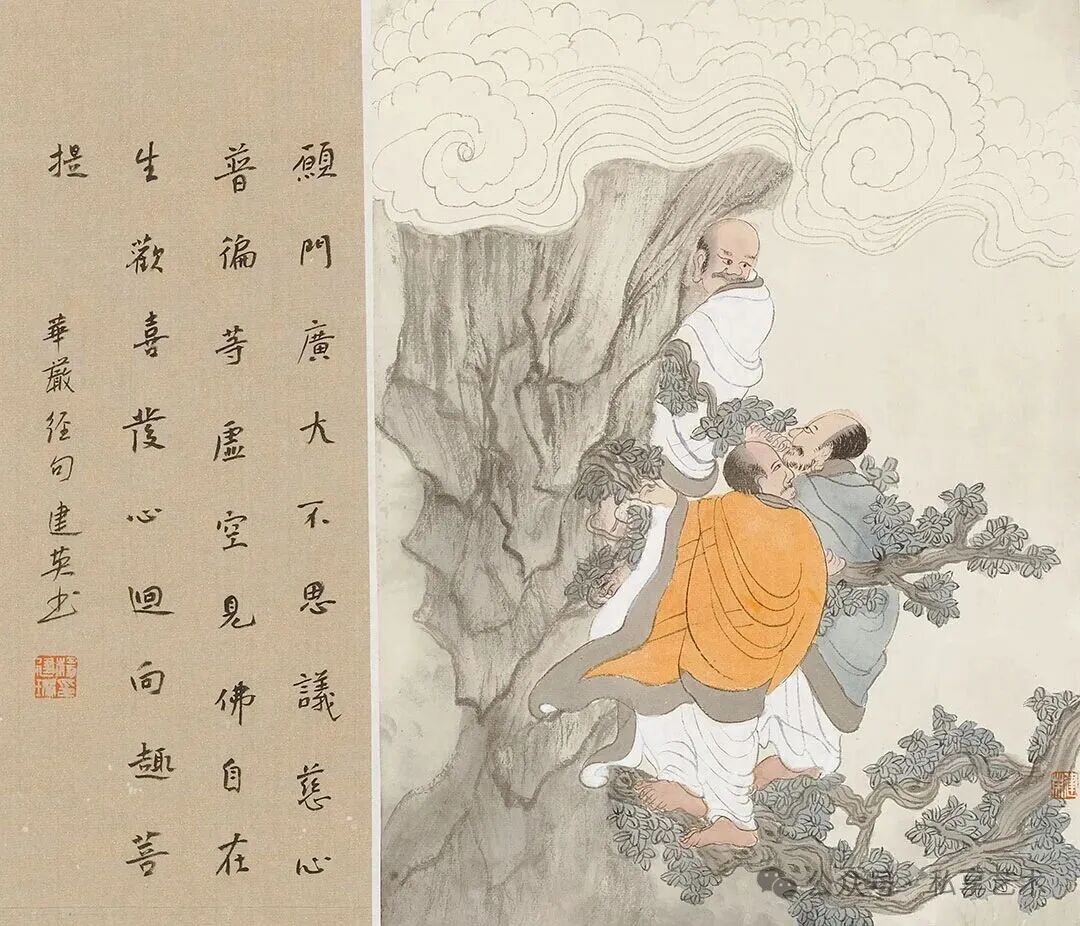 願門廣大不思議慈心
普徧等虛空見佛自在
生歡喜發心迴向趣菩
提
華嚴經句建英书
公众号·私募艺术